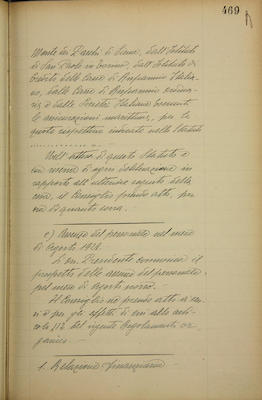 469
Monte dei Paschi di Siena, dall'Istituto
di San Paolo in Torino, dall'Istituto di
Credito delle Casse di Risparmio Italia-
ne, dalle Casse di Risparmio
e dalle Società Italiane esercenti
le assicurazioni marittime, per le
quote rispettive indicate nello Statuto
di questo Statuto e
con riserva di ogni deliberazione in
rapporto all'ulteriore seguito della
cosa, il Consiglio prende atto, per
ora di quanto sopra.
c) Assenze del personale nel mese
di Agosto 1928.
Il Sig. Presidente comunica il
prospetto delle assenze del personale
nel mese di Agosto scorso.
Il Consiglio ne prende atto ai sen-
si e per gli effetti di cui allo arti-
colo 112 del vigente Regolamento or-
ganico.
1. Relazione finanziaria